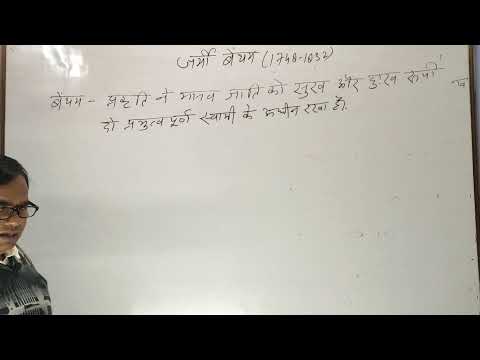 जर्मी बेंथम (1748-1832)
बेंथम - प्रकृति ने मानव जाति को सुख और दुःख रूपी
दो प्रभुत्वपूर्ण स्वामी के अधीन रखा है।